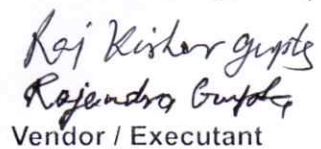 Raj Kishor Gupta
Rajendra Gupta
Vendor / Executant